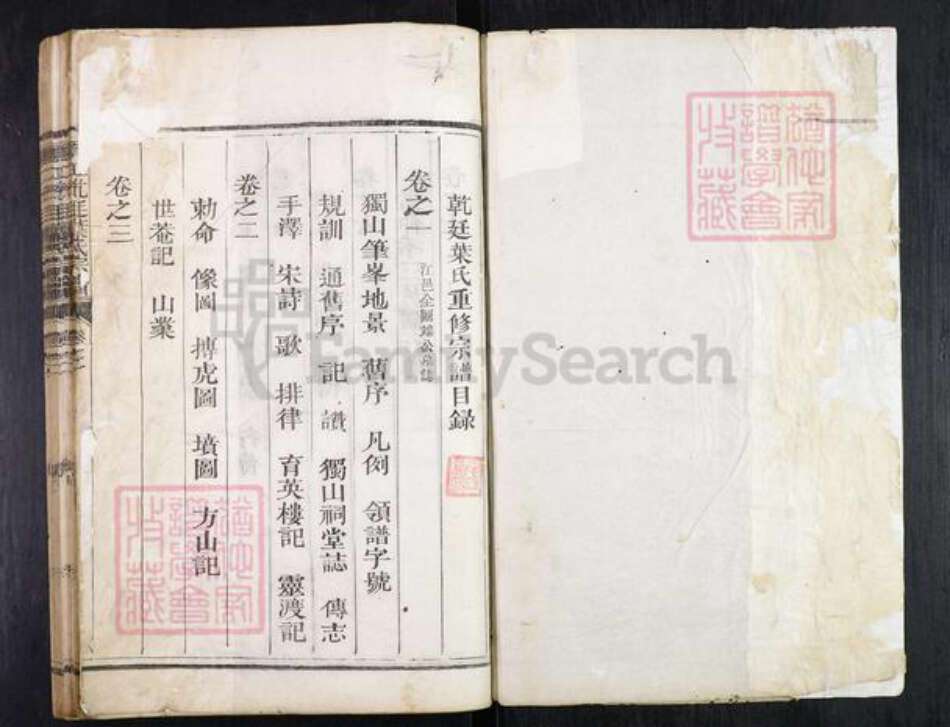 乾廷葉氏重修宗譜目錄
卷之一
獨山筆峯地景 舊序 凡例 領譜字號
規訓 通舊序 記 讚 獨山祠堂誌 傳志
手澤 宋詩 歌 排律 育英樓記 靈渡記
卷之二
勅命 像圖 搏虎圖 墳圖 方山記
世菴記 山業
卷之三
猶他家
譜學會
收藏
猶他家
譜學會
收藏
FamilySearch